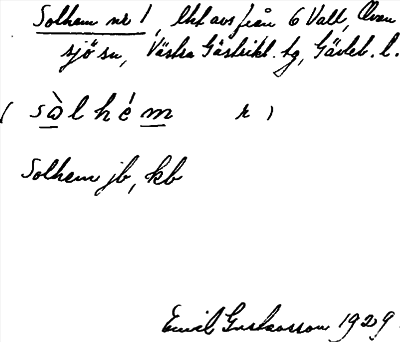 Solhem nr 1, lht avs från 6 Vall, Ovan
sjö sn, Västra Gästrikl. tg, Gävleb. l.
( sòlhém r )
Solhem jb, kb
Emil Gustavsson 1929